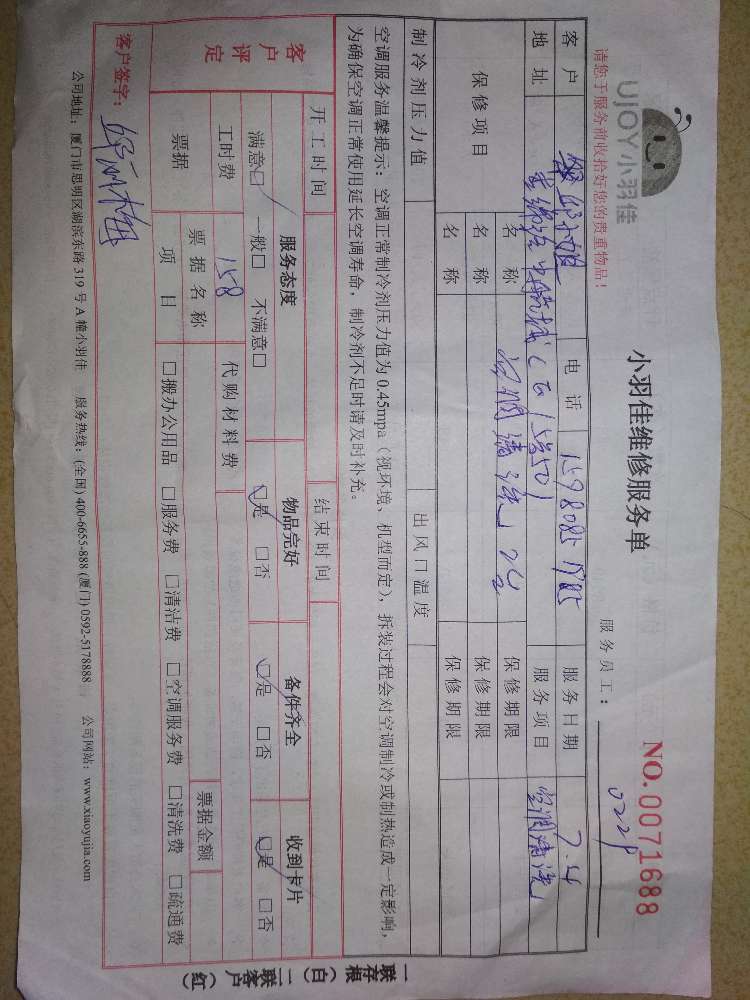 UJOY小羽佳
小羽佳维修服务单
NO.0071688
请您于服务前收拾好您的贵重物品!
服务员工:
客户 电话 服务日期 7.4
地址: 服务项目 空调清洗
保修项目 名称 空调清洗 2台 保修期限
名称 保修期限
名称 保修期限
制冷剂压力值 出风口温度
空调服务温馨提示:空调正常制冷剂压力值为0.45mpa(视环境、机型而定),拆装过程会对空调制冷或制热造成一定影响,
为确保空调正常使用延长空调寿命,制冷剂不足时请及时补充。
开工时间 结束时间
客户评定 服务态度 物品完好 备件齐全 收到卡片
满意□ 一般□ 不满意□ □是 □否 □是 □否 □是 □否
工时费 158 代购材料费
票据 票据名称 票据金额
项目 □搬办公用品 □服务费 □清洁费 □空调服务费 □清洗费 □疏通费
客户签字:
公司地址:厦门市思明区湖滨东路319号A幢小羽佳 服务热线:(全国)400-6655-888(厦门)0592-5178888 公司网站:www.xiaoyujia.com
一联存根(白)二联客户(红)